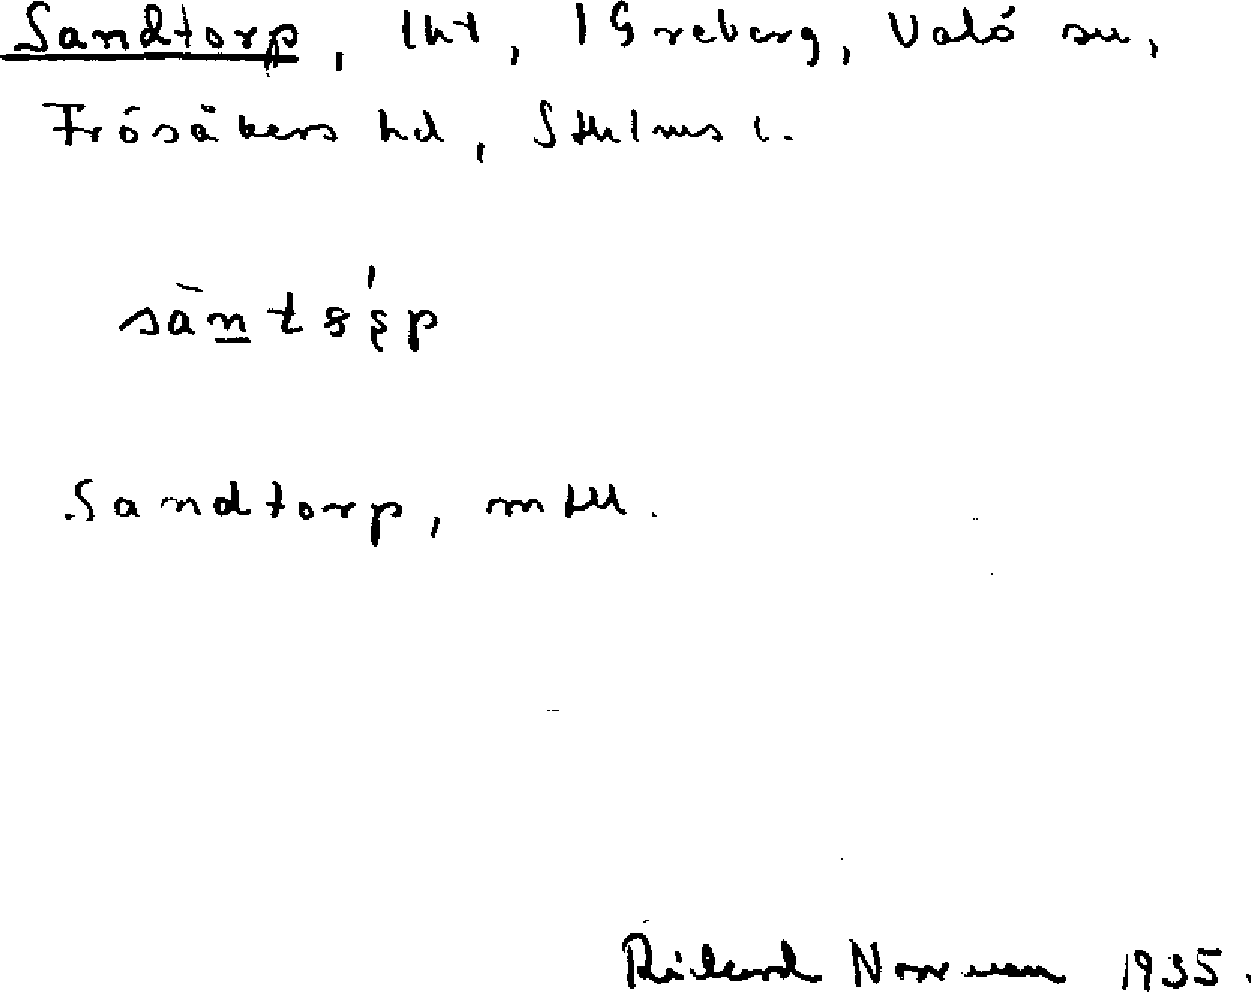 Sandtorp, lht, 1 Greberg, Valö sn,
Frösåkers hd, Sthlms l.
Sandtorp, mtl.
Rickard Norrman 1935.